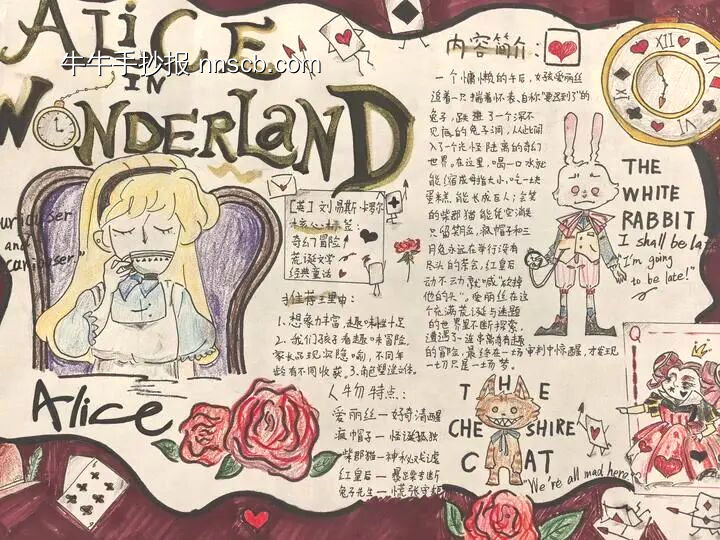 ALICE
IN
WONDERLAND
牛牛手抄报 nnscb.com
"curiouser
and
curiouser"
Alice
[英] 刘易斯·卡罗尔
核心标签:
奇幻冒险
荒诞文学
经典童话
推荐理由:
1、想象力丰富,趣味性十足
2、我们孩子看趣味冒险,
家长品现实隐喻,不同年
龄有不同收获。3、角色塑造立体。
人物特点:
爱丽丝—好奇清醒
疯帽子—怪诞孤独
柴郡猫—神秘戏谑
红皇后—暴躁专断
兔子先生—慌张守规
内容简介:
一个慵懒的午后,女孩爱丽丝
追着一只揣着怀表、自称"要迟到了"的
兔子,跳进了一个深不
见底的兔子洞,从此闯
入了个光怪陆离的奇幻
世界。在这里,喝一口水就
能缩成拇指大小,吃一块
蛋糕,能长成巨人;会笑
的柴郡猫能凭空消失
只留期笑,疯帽子和三
月兔永远在举行没有
尽头的茶会,红皇后
动不动就喊"砍掉
他的头"。爱丽丝在这
个充满荒诞与谜题
的世界里不断探索,
遭遇了一连串离奇有趣
的冒险,最终在一场审判中惊醒,才发现
一切只是一场梦。
THE
WHITE
RABBIT
I shall be late
"I'm going
to be late!"
THE
CHESHIRE
CAT
"We're all mad here"
Q